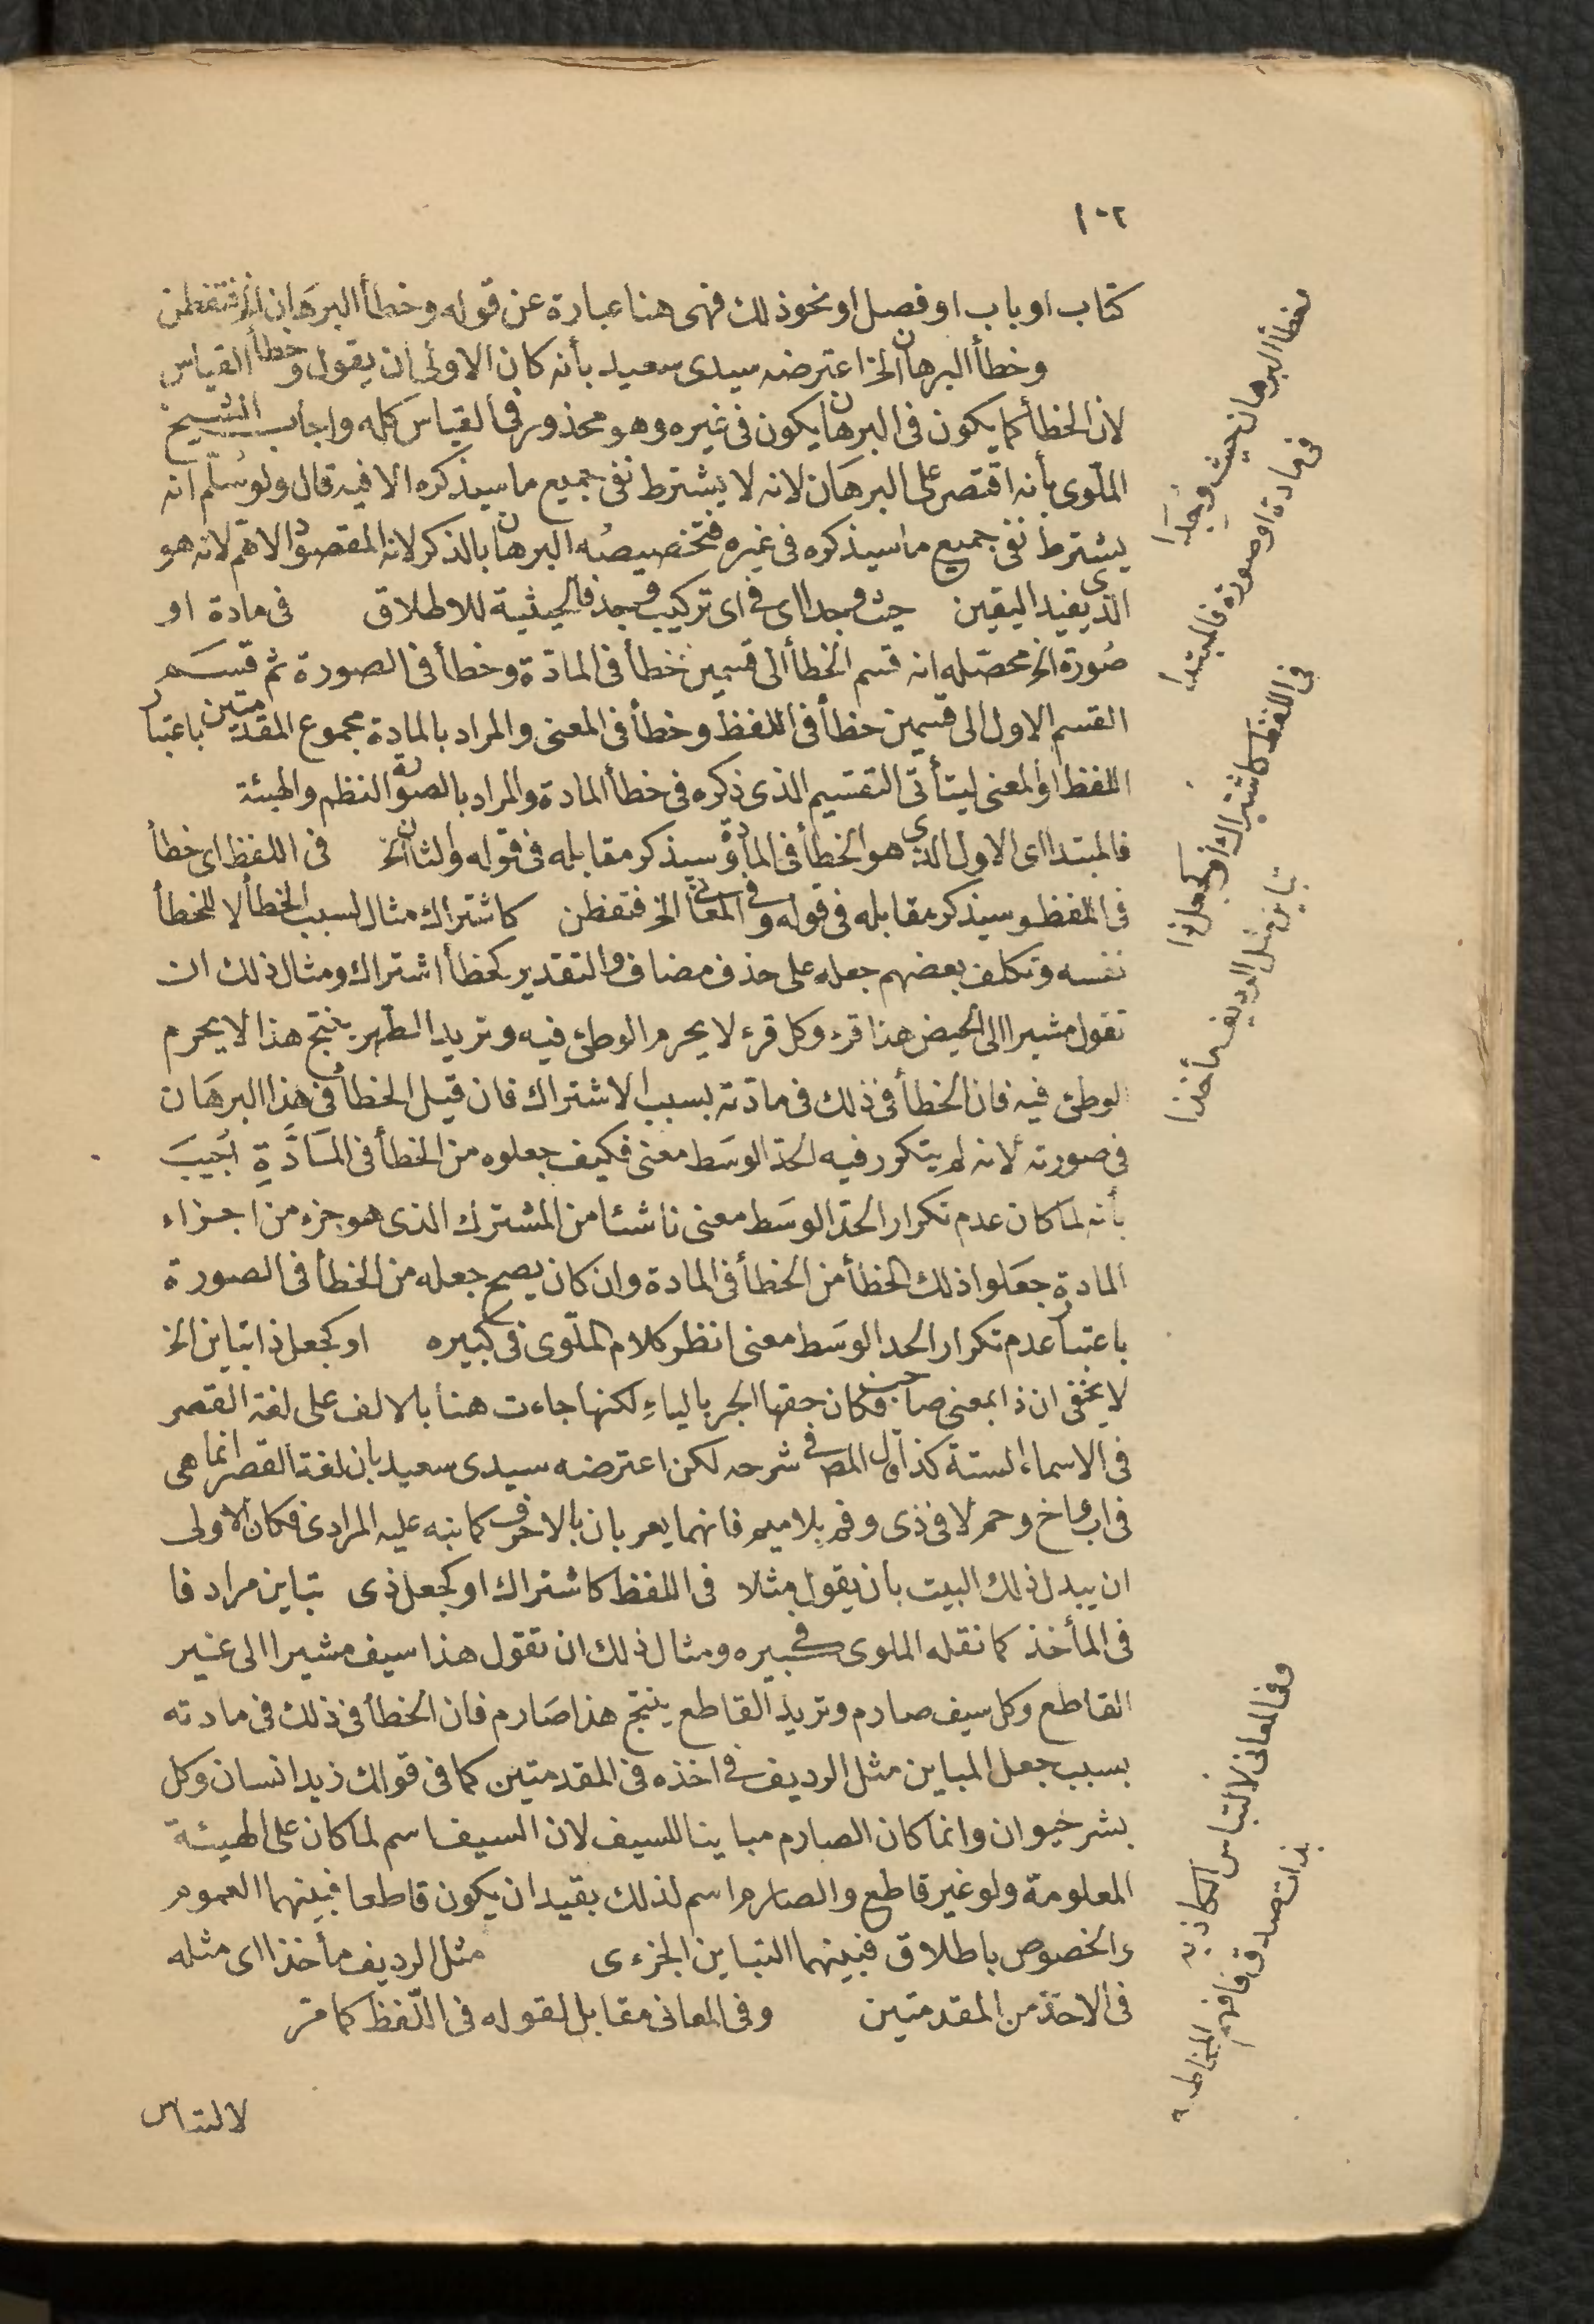 ١٠٢
كتاب او باب او فصل او نحو ذلك فهى هنا عبارة عن قوله وخطأ البرهان الخ فتفطن
وخطأ البرهان الخ اعترضه سيدى سعيد بأنه كان الاولى ان يقول وخطأ القياس
لان الخطأ كما يكون فى البرهان يكون فى غيره وهو محذور فى القياس كله واجاب الشيخ
الملّوى بأنه اقتصر على البرهان لانه لا يشترط نفى جميع ما سيذكره الا فيه قال ولو سُلّم انه
يشترط نفى جميع ما سيذكره فى غيره فتخصيصُه البرهان بالذكر لانه المقصود الاهم لانه هو
الذى يفيد اليقين حيث وجدا اى فى اى تركيب وجد فالحيثية للاطلاق فى مادة او
صُورة الخ محصّله انه قسم الخطأ الى قسمين خطأ فى المادّة وخطأ فى الصورة ثم قسم
القسم الاول الى قسمين خطأ فى اللفظ وخطأ فى المعنى والمراد بالمادة مجموع المقدمتين باعتبار
اللفظ او المعنى ليتأتّى التقسيم الذى ذكره فى خطأ المادة والمراد بالصورة النظم والهيئة
فالمبتدا اى الاول الذى هو الخطأ فى المادة وسيذكر مقابله فى قوله والثان الخ فى اللفظ اى خطأ
فى اللفظ وسيذكر مقابله فى قوله وفى المعانى الخ فتفطن كاشتراك مثال لسبب الخطأ لا للخطأ
نفسه وتكلف بعضهم جعله على حذف مضاف والتقدير كخطأ اشتراك ومثال ذلك ان
تقول مشيرا الى الحيض هذا قرء وكل قرء لا يحرم الوطئ فيه وتريد الطهر ينتج هذا لا يحرم
الوطئ فيه فان الخطأ فى ذلك فى مادّته بسبب الاشتراك فان قيل الخطأ فى هذا البرهان
فى صورته لانه لم يتكرر فيه الحدّ الوسَط معنى فكيف جعلوه من الخطأ فى المَادَّةِ اُجيبَ
بأنه لما كان عدم تكرار الحدّ الوسَط معنى ناشئا من المشترك الذى هو جزء من اجزاء
المادة جعَلوا ذلك الخطأ من الخطأ فى المادة وان كان يصح جعله من الخطأ فى الصورة
باعتبار عدم تكرار الحد الوسَط معنى انظر كلام الملّوى فى كبيره او كجعل ذا تباين الخ
لا يخفى ان ذا بمعنى صاحب فكان حقها الجر بالياءِ لكنها جاءت هنا بالالف على لغة القصر
فى الاسماء الستة كذا قال المص فى شرحه لكن اعترضه سيدى سعيد بان لغة القصر انما هى
فى اب واخ وحم لا فى ذى وفم بلا ميم فانهما يعربان بالاحرف كما نبه عليه المرادى فكان الاولى
ان يبدل ذلك البيت بان يقول مثلا فى اللفظ كاشتراك او كجعل ذى تباين مرادفا
فى المأخذ كما نقله الملوى فى كبيره ومثال ذلك ان تقول هذا سيف مشيرا الى غير
القاطع وكل سيف صارم وتريد القاطع ينتج هذا صَارم فان الخطأ فى ذلك فى مادته
بسبب جعل المباين مثل الرديف فى اخذه فى المقدمتين كما فى قولك زيد انسان وكل
بشر حيوان وانما كان الصارم مباينا للسيف لان السيف اسم لما كان على الهيئة
المعلومة ولو غير قاطع والصارم اسم لذلك بقيد ان يكون قاطعا فبينهما العموم
والخصوص باطلاق فبينهما التباين الجزءى مثل الرديف مأخذا اى مثله
فى الاخذ من المقدمتين وفى المعانى مقابل لقوله فى اللّفظ كما مرّ
لالتباس
وخطأ البرهان حيث وُجِدَا
فى مادة او صورة فالمبتدا
فى اللفظ كاشتراك أو كجعل ذا
تباين مثل الرديف مأخذا
وفى المعانى لالتباس الكاذبه
بذات صدق فافهم المخاطبه